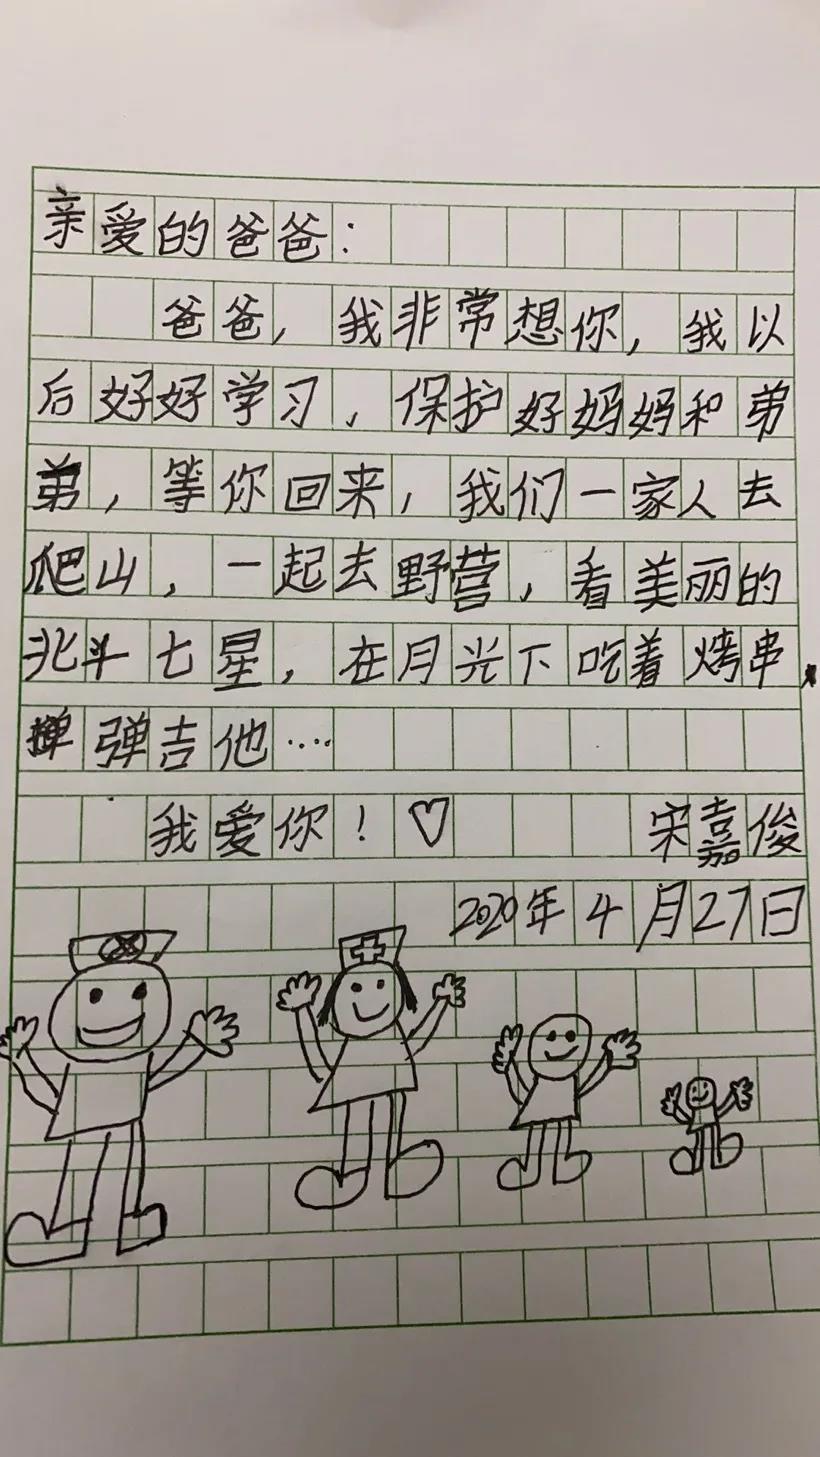 亲爱的爸爸：
爸爸，我非常想你，我以
后好好学习，保护好妈妈和弟
弟，等你回来，我们一家人去
爬山，一起去野营，看美丽的
北斗七星，在月光下吃着烤串，
弹吉他····
我爱你！♡ 宋嘉俊
2020年4月27日